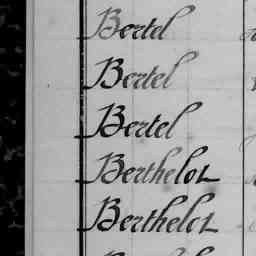 Bertel
Bertel
Bertel
Berthelot
Berthelot